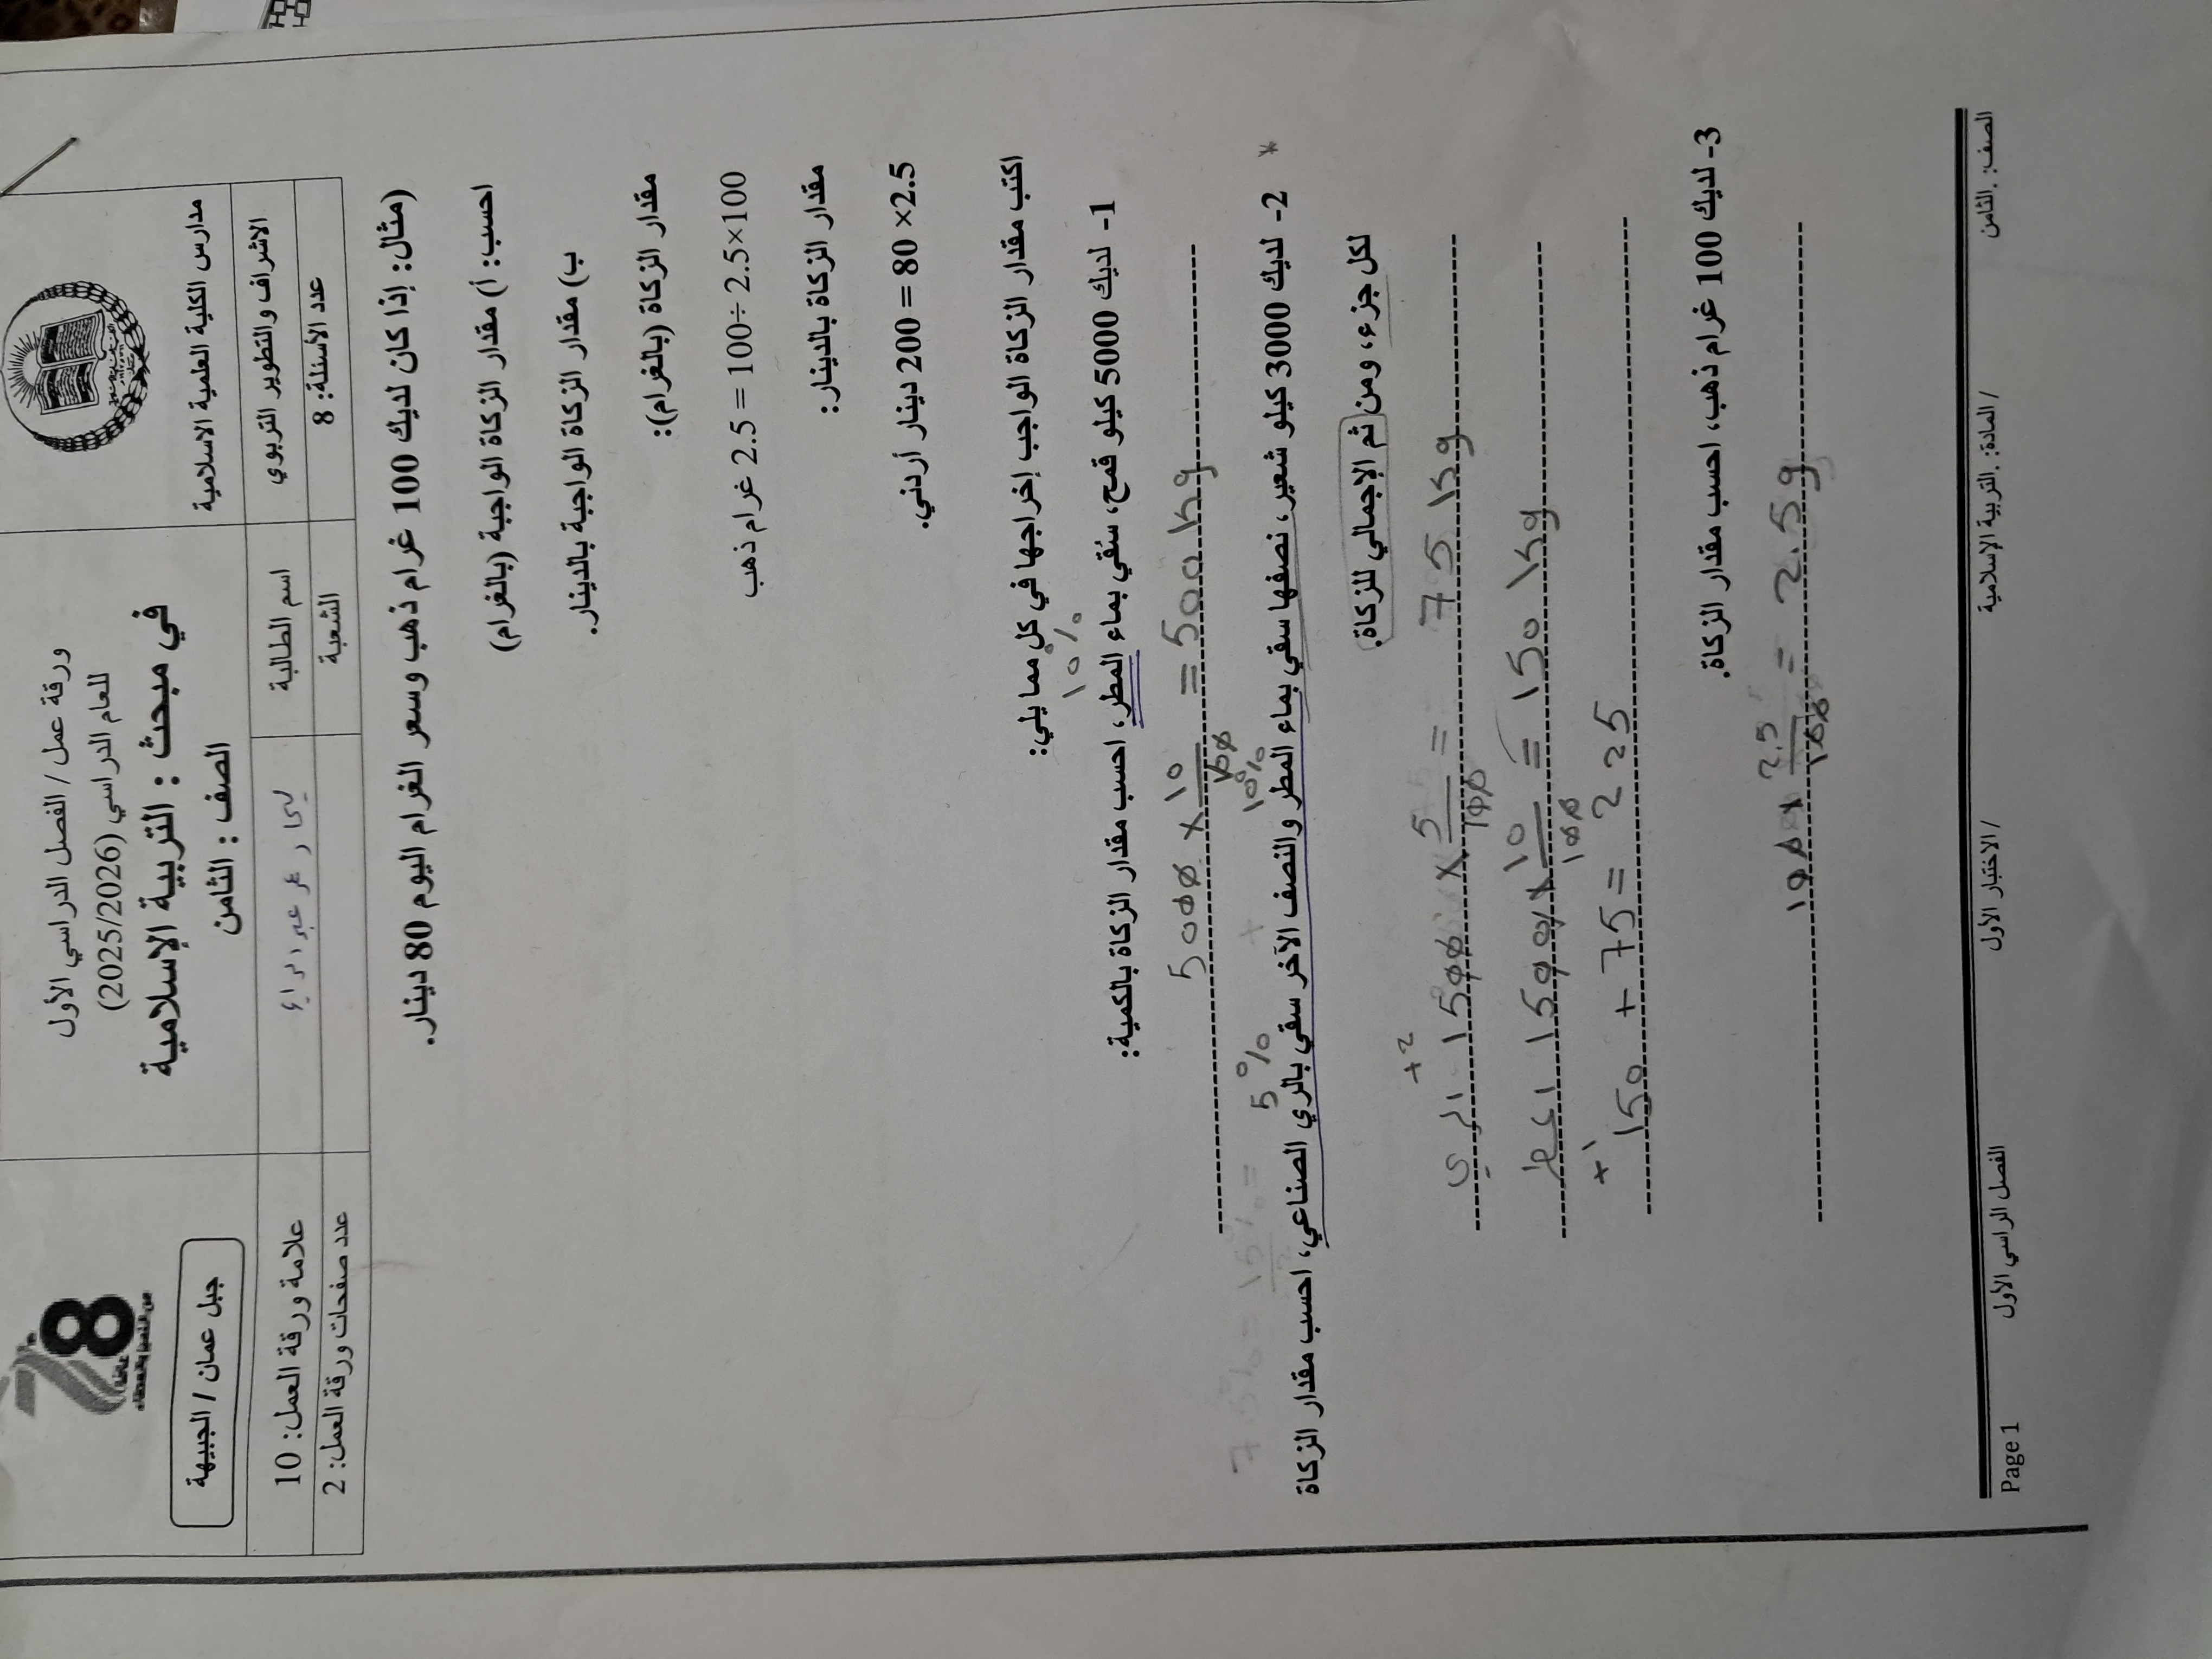 مدارس الكلية العلمية الاسلامية
ورقة عمل / الفصل الدراسي الأول
للعام الدراسي (2025/2026)
في مبحث : التربية الإسلامية
الصف : الثامن
8
جبل عمان / الجبيهة
الاشراف والتطوير التربوي
اسم الطالبة
علامة ورقة العمل: 10
عدد الأسئلة: 8
الشعبة
عدد صفحات ورقة العمل: 2
(مثال: إذا كان لديك 100 غرام ذهب وسعر الغرام اليوم 80 دينار.
احسب: أ) مقدار الزكاة الواجبة (بالغرام)
ب) مقدار الزكاة الواجبة بالدينار.
مقدار الزكاة (بالغرام):
2.5 = 100÷ 2.5×100 غرام ذهب
مقدار الزكاة بالدينار:
200 = 80 ×2.5 دينار أردني.
اكتب مقدار الزكاة الواجب إخراجها في كل مما يلي:
10%
1- لديك 5000 كيلو قمح، سُقي بماء المطر، احسب مقدار الزكاة بالكمية:
5000 × 10/100 = 500 kg
7.5% = 15% = 5% + 10%
2- لديك 3000 كيلو شعير، نصفها سقي بماء المطر والنصف الآخر سقي بالري الصناعي، احسب مقدار الزكاة *
لكل جزء، ومن ثم الإجمالي للزكاة.
+2
الري 1500 × 5/100 = 75 kg
1500 × 10/100 = 150 kg
+1
150 + 75 = 225
3- لديك 100 غرام ذهب، احسب مقدار الزكاة.
100 × 2.5/100 = 2.5 g
الصف: .الثامن / المادة: .التربية الإسلامية / الاختبار الأول الفصل الراسي الأول Page 1